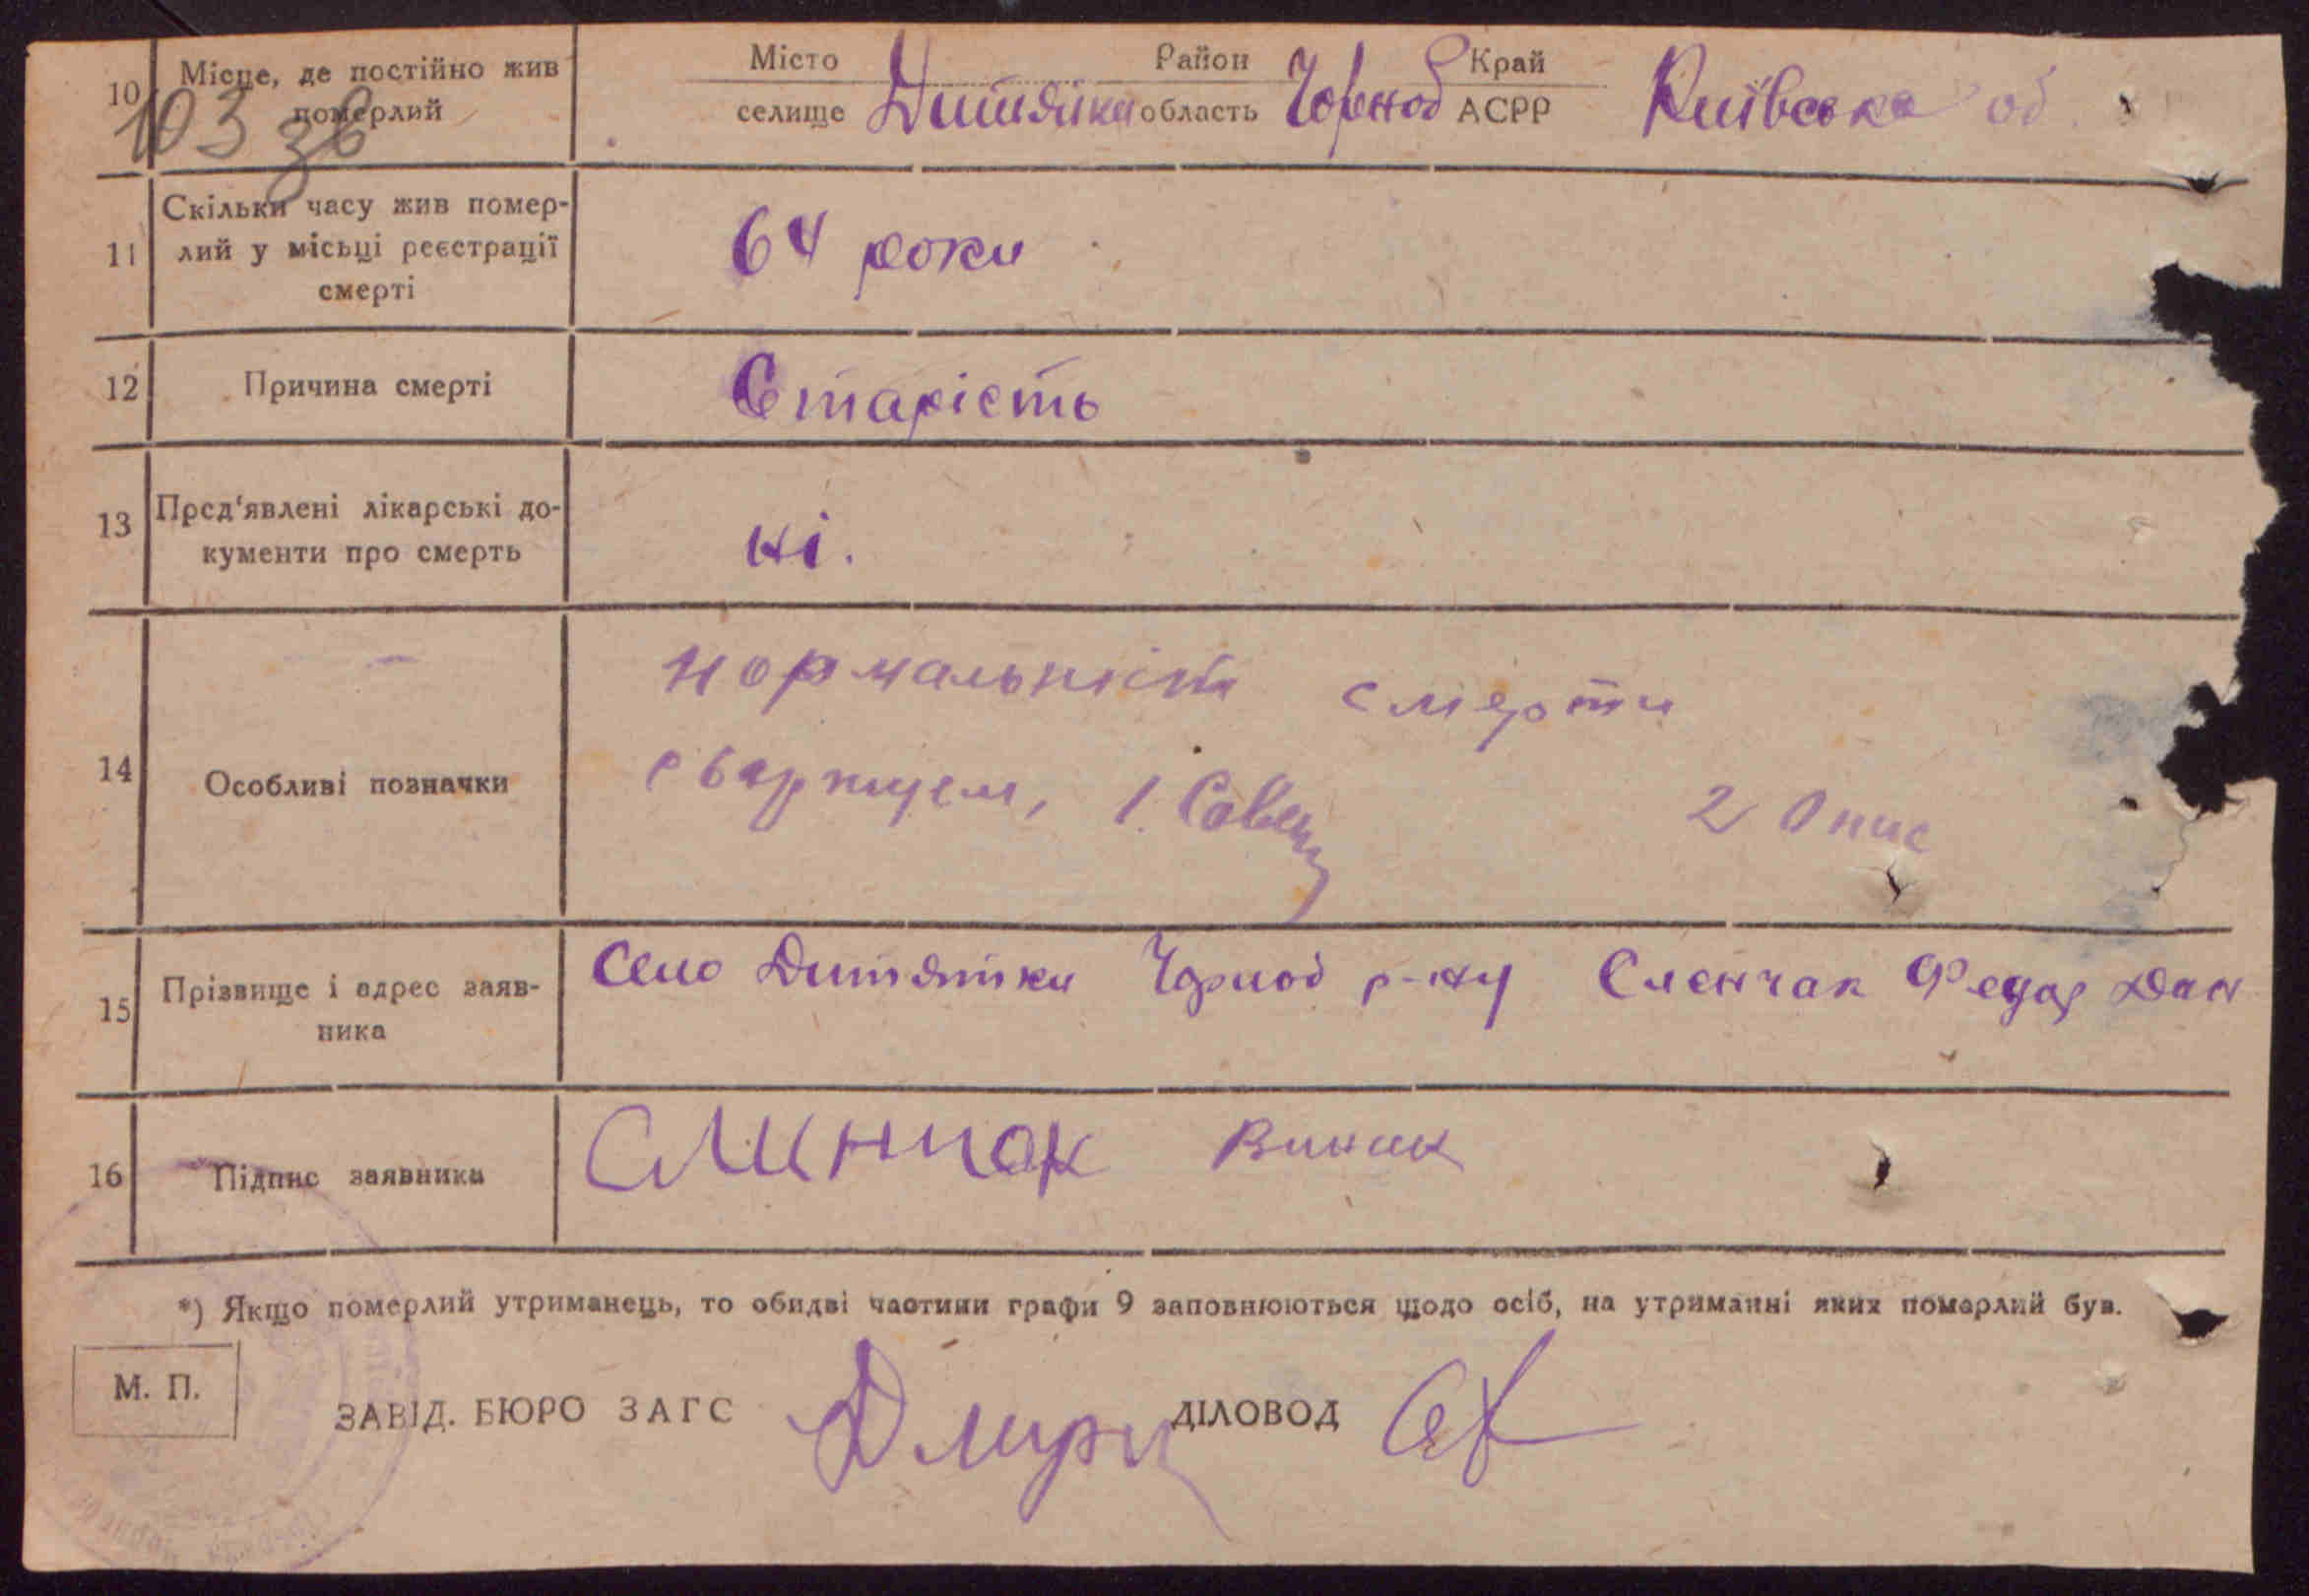 10 Місце, де постійно жив померлий
103 зв
Місто Район Край
селище Дитятки область Чорноб АСРР Київська об
11 Скільки часу жив помер-
лий у місьці реєстрації
смерті
64 роки
12 Причина смерті Старість
13 Пред'явлені лікарські до-
кументи про смерть
ні.
нормальність смерти
14 Особливі позначки
2 Опис
15 Прізвище і адрес заяв-
ника
Село Дитятки Чорноб р-ну Сленчак Федор Дан
16 Підпис заявника
*) Якщо померлий утриманець, то обидві частини графи 9 заповнюються щодо осіб, на утриманні яких померлий був.
М. П.
ЗАВІД. БЮРО ЗАГС ДІЛОВОД